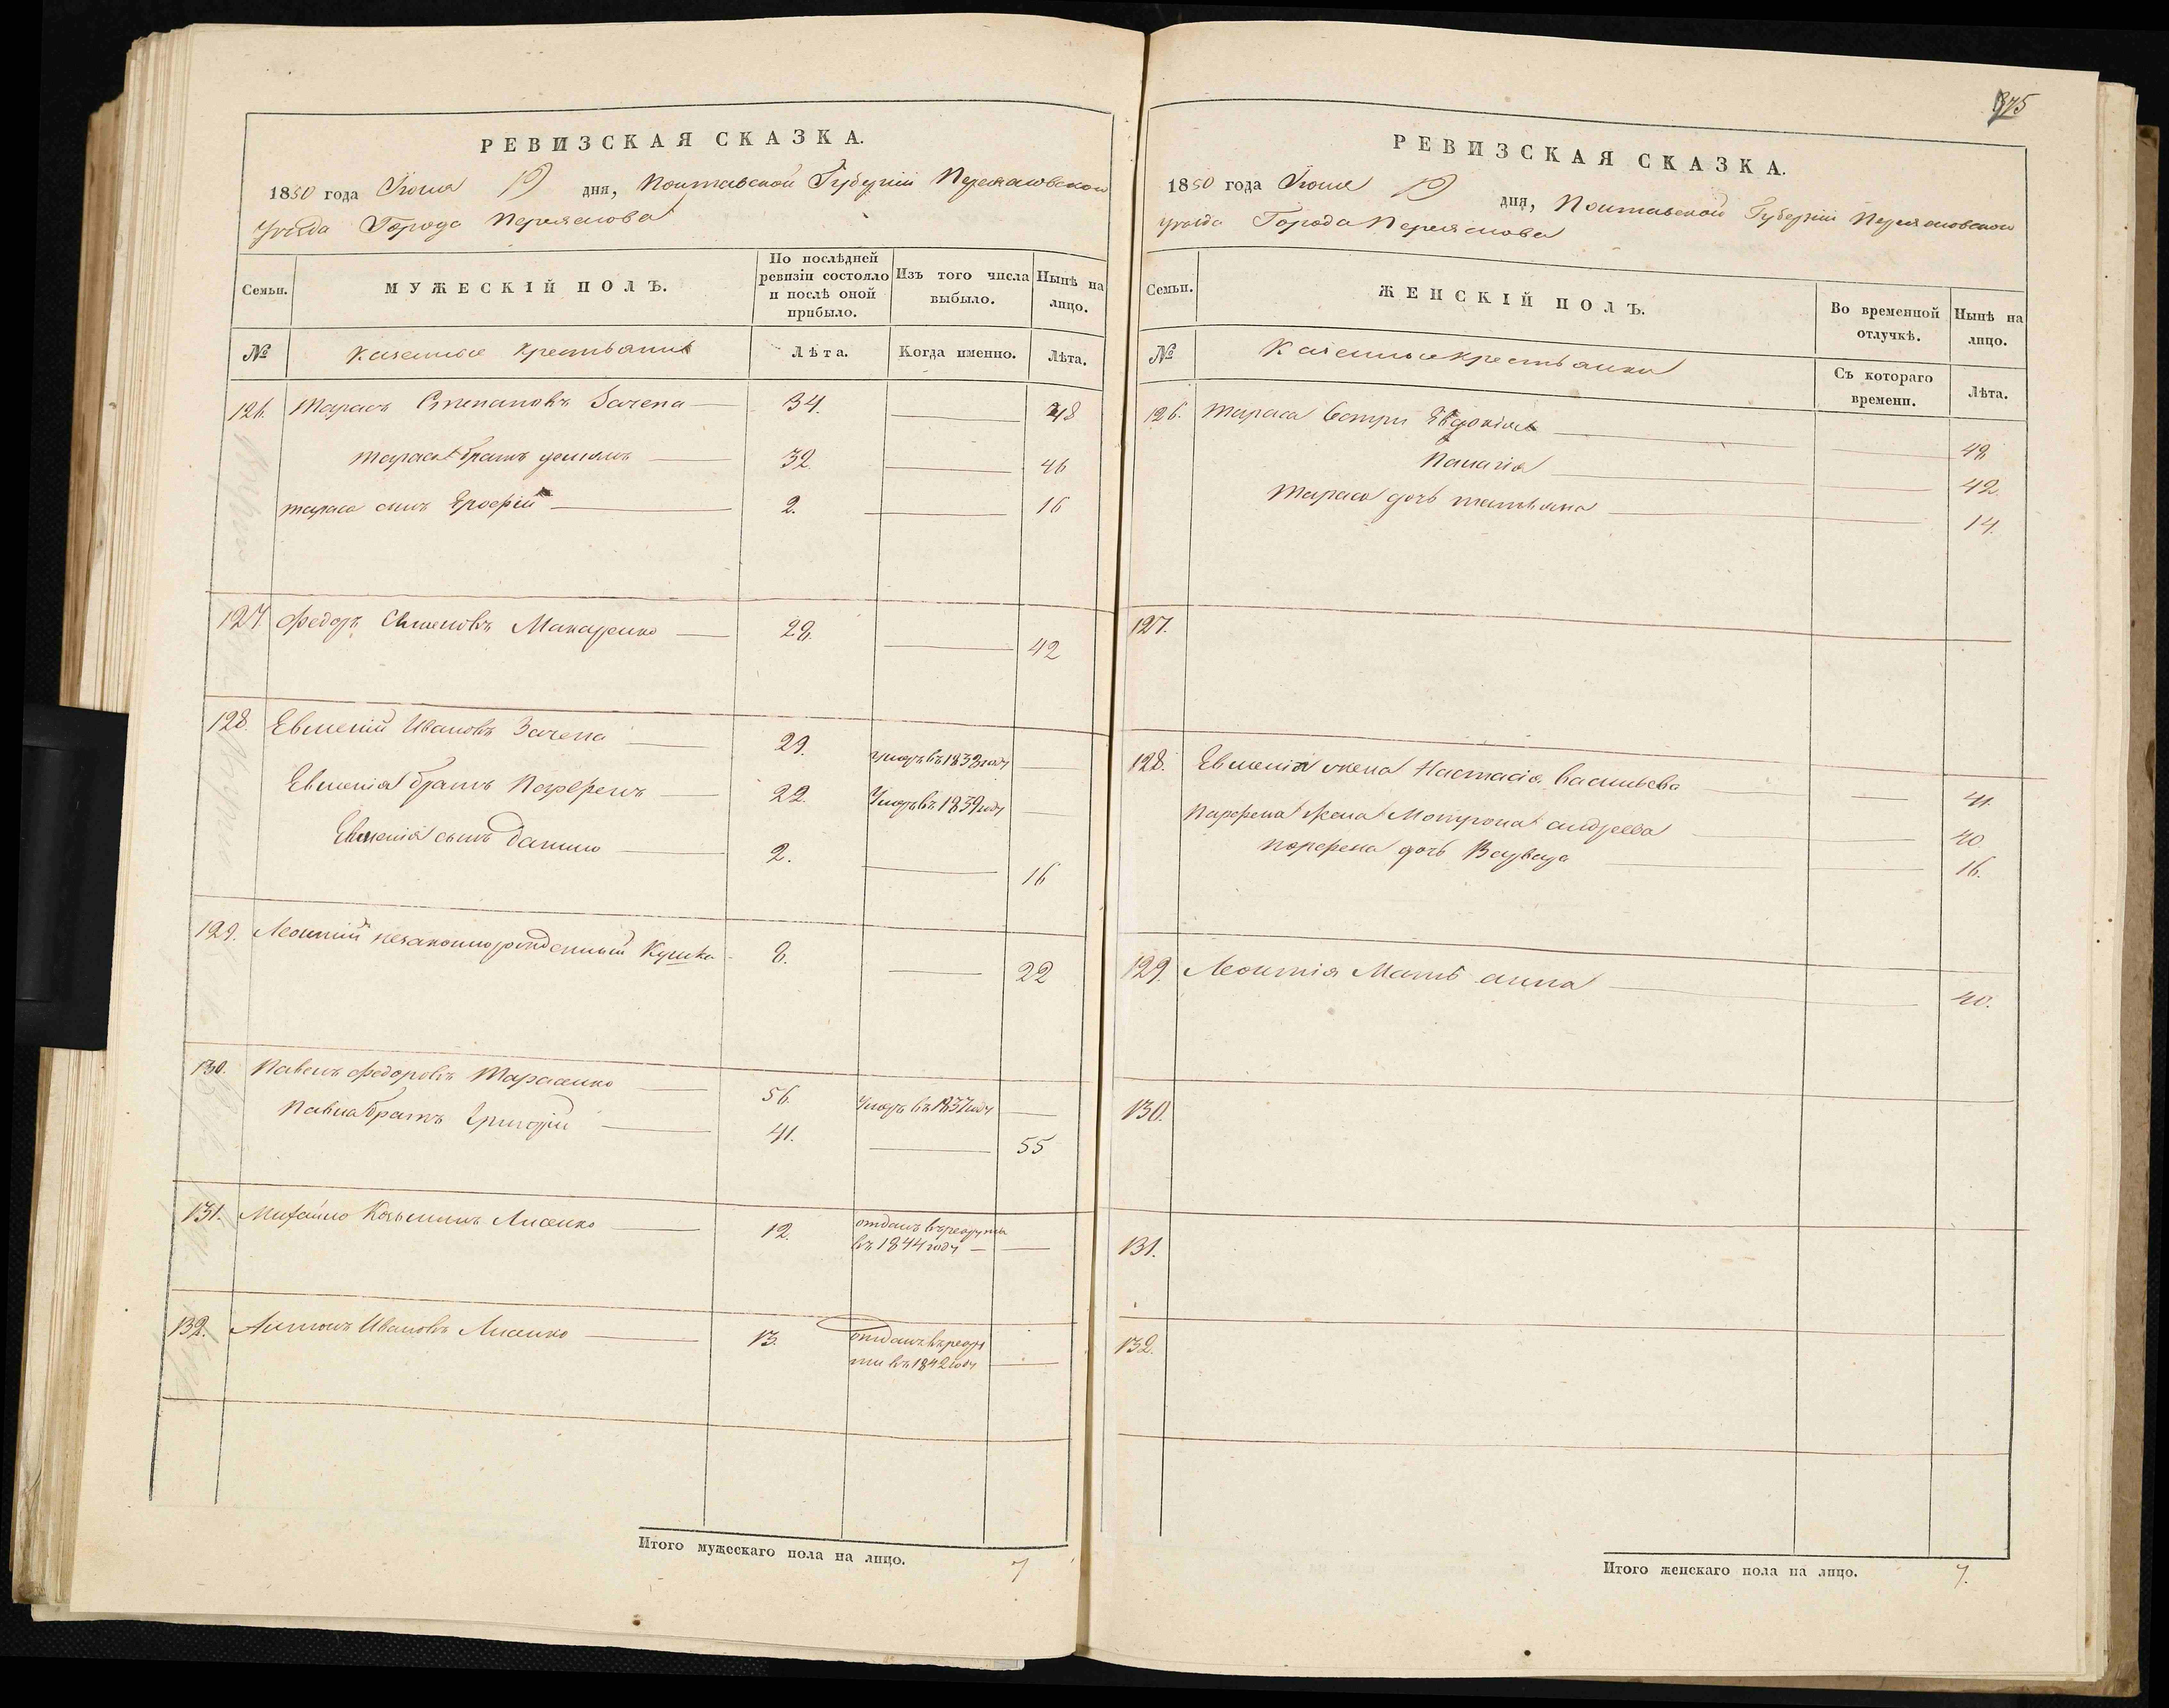 РЕВИЗСКАЯ СКАЗКА.
1850 года Іюня 19 дня, Полтавской Губерніи Переяславскаго
уѣзда Города Переяслова
Семьи. МУЖЕСКІЙ ПОЛЪ. По послѣдней ревизіи состояло и послѣ оной прибыло. Изъ того числа выбыло. Нынѣ на лицо.
№ Казенные крестьяне Лѣта. Когда именно. Лѣта.
126. Тарасъ Степановъ Зачепа 34. 48
Тараса братъ 32. 46
Тараса сынъ Ерофій 2. 16
127. Федоръ Семеновъ Макаренко 28. 42
128. Евменій Ивановъ Зачепа 29. умеръ въ 1838 году
Евменія братъ Парфенъ 22. Умеръ въ 1839 году
Евменія сынъ Данило 2. 16
129. Леонтій незаконнорожденный 8. 22
130. Павелъ Федоровъ Тарасенко 56. Умеръ въ 1837 году
Павла братъ Григорій 41. 55
131. Михайло Козьминъ Лисенко 12. отданъ въ рекруты
въ 1844 году
132. Антонъ Ивановъ Лисенко 13. отданъ въ рекру
ты въ 1842 году
Итого мужескаго пола на лицо. 7
375
РЕВИЗСКАЯ СКАЗКА.
1850 года Іюня 19 дня, Полтавской Губерніи Переясловскаго
уѣзда Города Переяслова
Семьи. ЖЕНСКІЙ ПОЛЪ. Во временной отлучкѣ. Нынѣ на лицо.
№ Казенные крестьянки Съ котораго времени. Лѣта.
126. Тараса сестры Евдокія 48
Палагія 42.
Тараса дочь Татьяна 14.
127.
128. Евменія жена Настасія Васильева 41.
Парфена жена Мотрона Андреева 40
Парфена дочь Варвара 16.
129. Леонтія Мать Анна 40.
130.
131.
132.
Итого женскаго пола на лицо. 7.